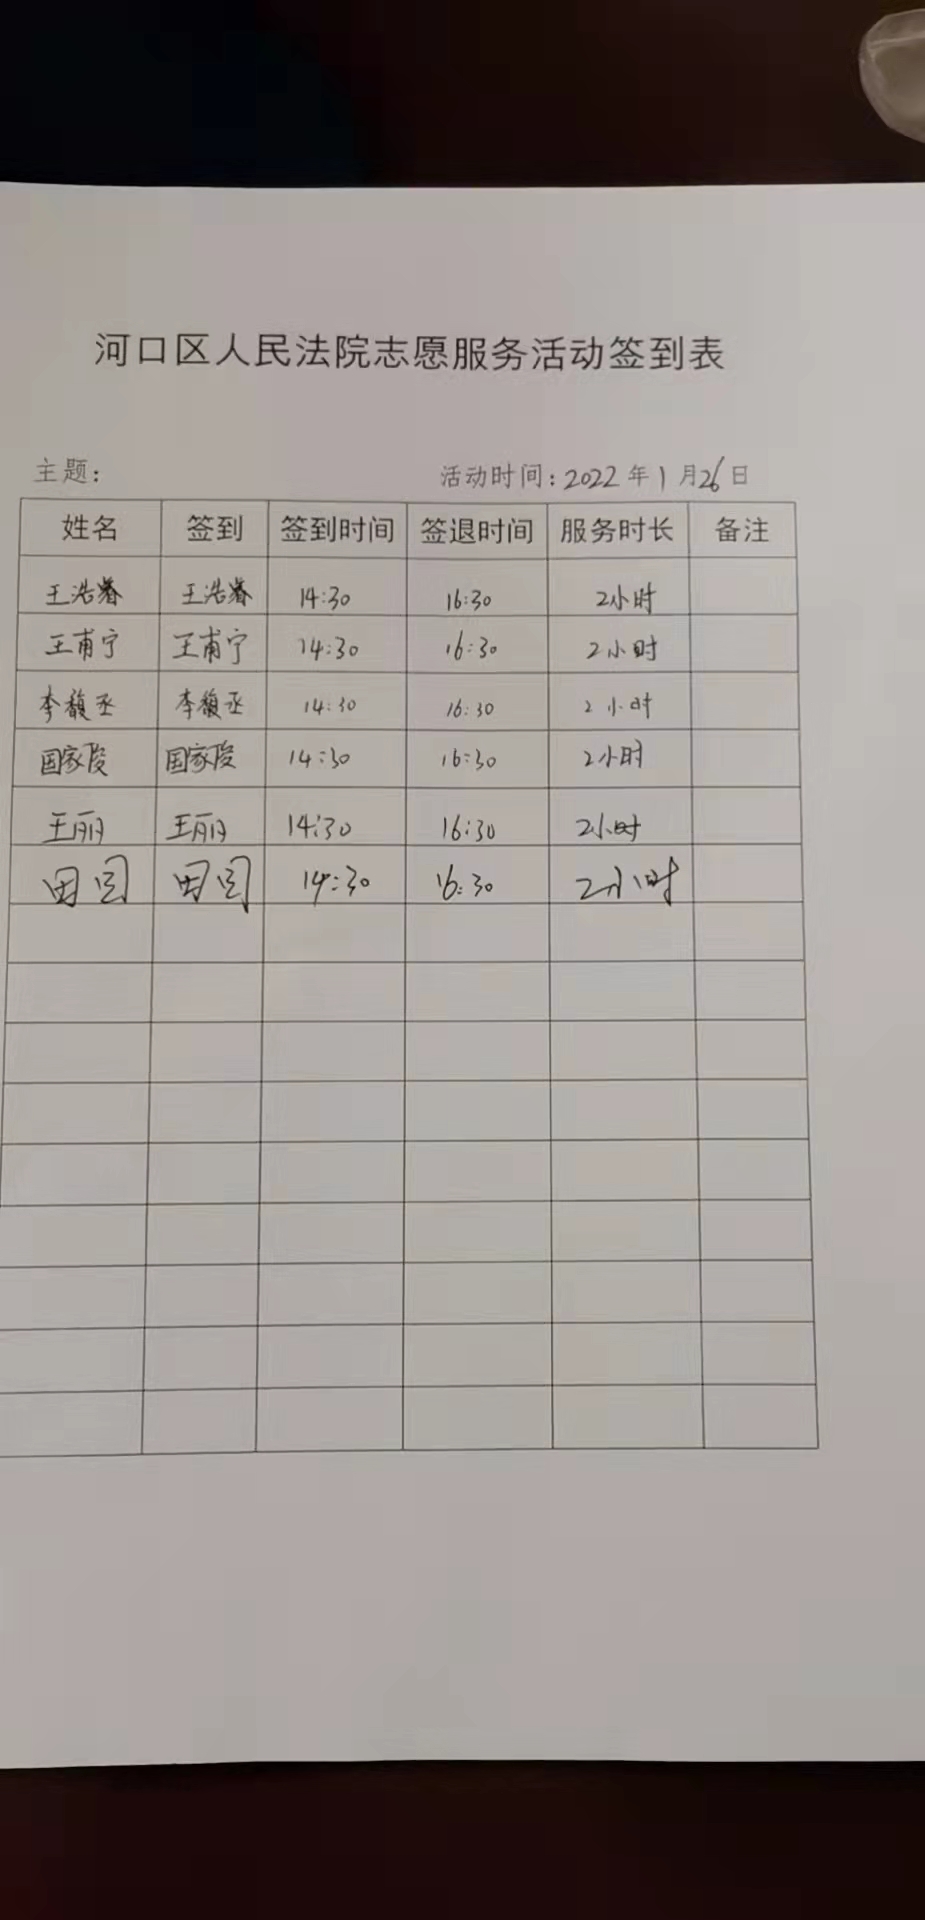 河口区人民法院志愿服务活动签到表
主题： 活动时间：2022年1月26日
姓名 签到 签到时间 签退时间 服务时长 备注
王浩睿 王浩睿 14:30 16:30 2小时
王甫宁 王甫宁 14:30 16:30 2小时
李馥丞 李馥丞 14:30 16:30 2小时
国家陵 国家陵 14:30 16:30 2小时
王丽 王丽 14:30 16:30 2小时
田园 田园 14:30 16:30 2小时